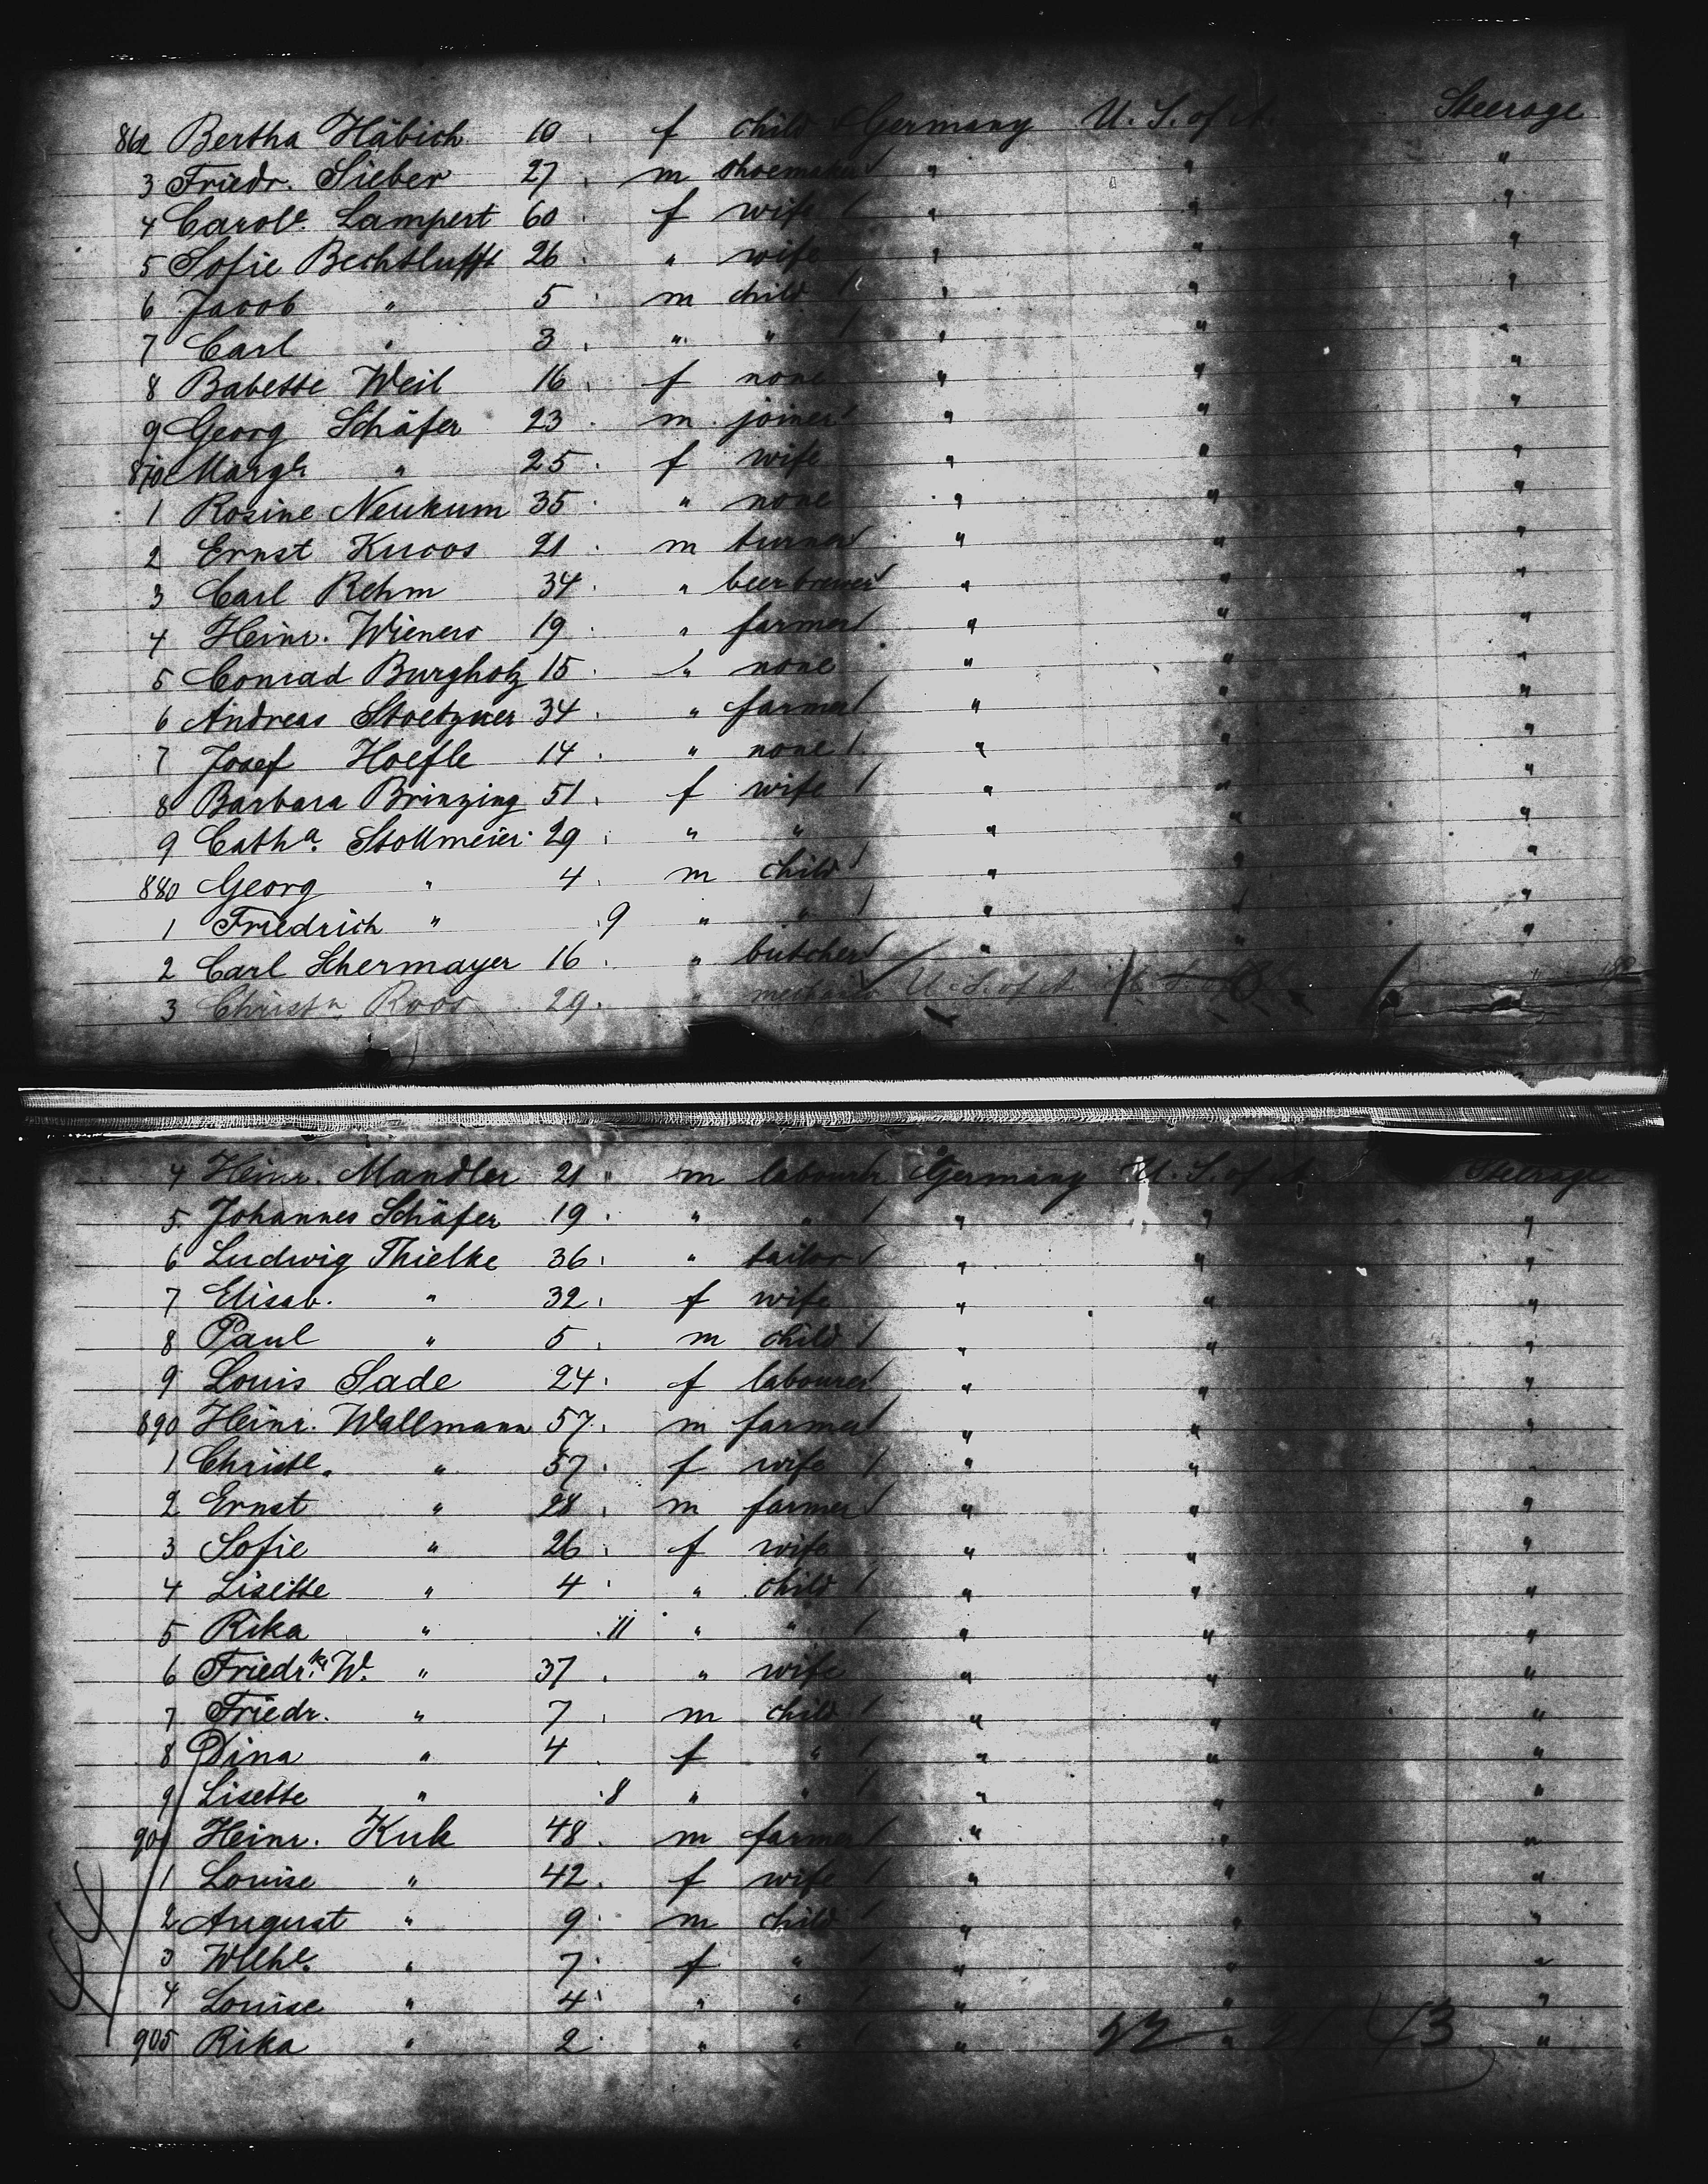 862 Bertha Häbich 10 f child Germany U. S. of A. Steerage
3 Friedr. Sieber 27 m shoemaker " " "
4 Carole. Lampert 60 f wife " " "
5 Sofie Bechtlufft 26 " wife " " "
6 Jacob " 5 m child " " "
7 Carl " 3 " " " " "
8 Babette Weil 16 f none " " "
9 Georg Schäfer 23 m joiner " " "
870 Margte " 25 f wife " " "
1 Rosine Neukum 35 " none " " "
2 Ernst Knoos 21 m turner " " "
3 Carl Rehm 34 " beerbrewer " " "
4 Heinr. Wieners 19 " farmer " " "
5 Conrad Burgholz 15 " none " " "
6 Andreas Stoetzner 34 " farmer " " "
7 Josef Hoefle 14 " none " " "
8 Barbara Brinzing 51 f wife " " "
9 Catha. Stollmeier 29 " " " " "
880 Georg " 4 m child " " "
1 Friedrich " .9 " " " " "
2 Carl Schermayer 16 " butcher " " "
3 Christn Roos 29 " U. S. of A "
4 Heinr. Mandler 21 m labourer Germany U. S. of A. Steerage
5 Johannes Schäfer 19 " " " " "
6 Ludwig Thielke 36 " tailor " " "
7 Elisab. " 32 f wife " " "
8 Paul " 5 m child " " "
9 Louis Sade 24 f labourer " " "
890 Heinr. Wallmann 57 m farmer " " "
1 Christe. " 57 f wife " " "
2 Ernst " 28 m farmer " " "
3 Sofie " 26 f wife " " "
4 Lisette " 4 " child " " "
5 Rika " .11 " " " " "
6 Friedrke W. " 37 " wife " " "
7 Friedr. " 7 m child " " "
8 Dina " 4 f " " " "
9 Lisette " .8 " " " " "
900 Heinr. Kuk 48 m farmer " " "
1 Louise " 42 f wife " " "
2 August " 9 m child " " "
3 Wilhe. " 7 f " " " "
4 Louise " 4 " " " " "
905 Rika " 2 " " " " "
22 21 43